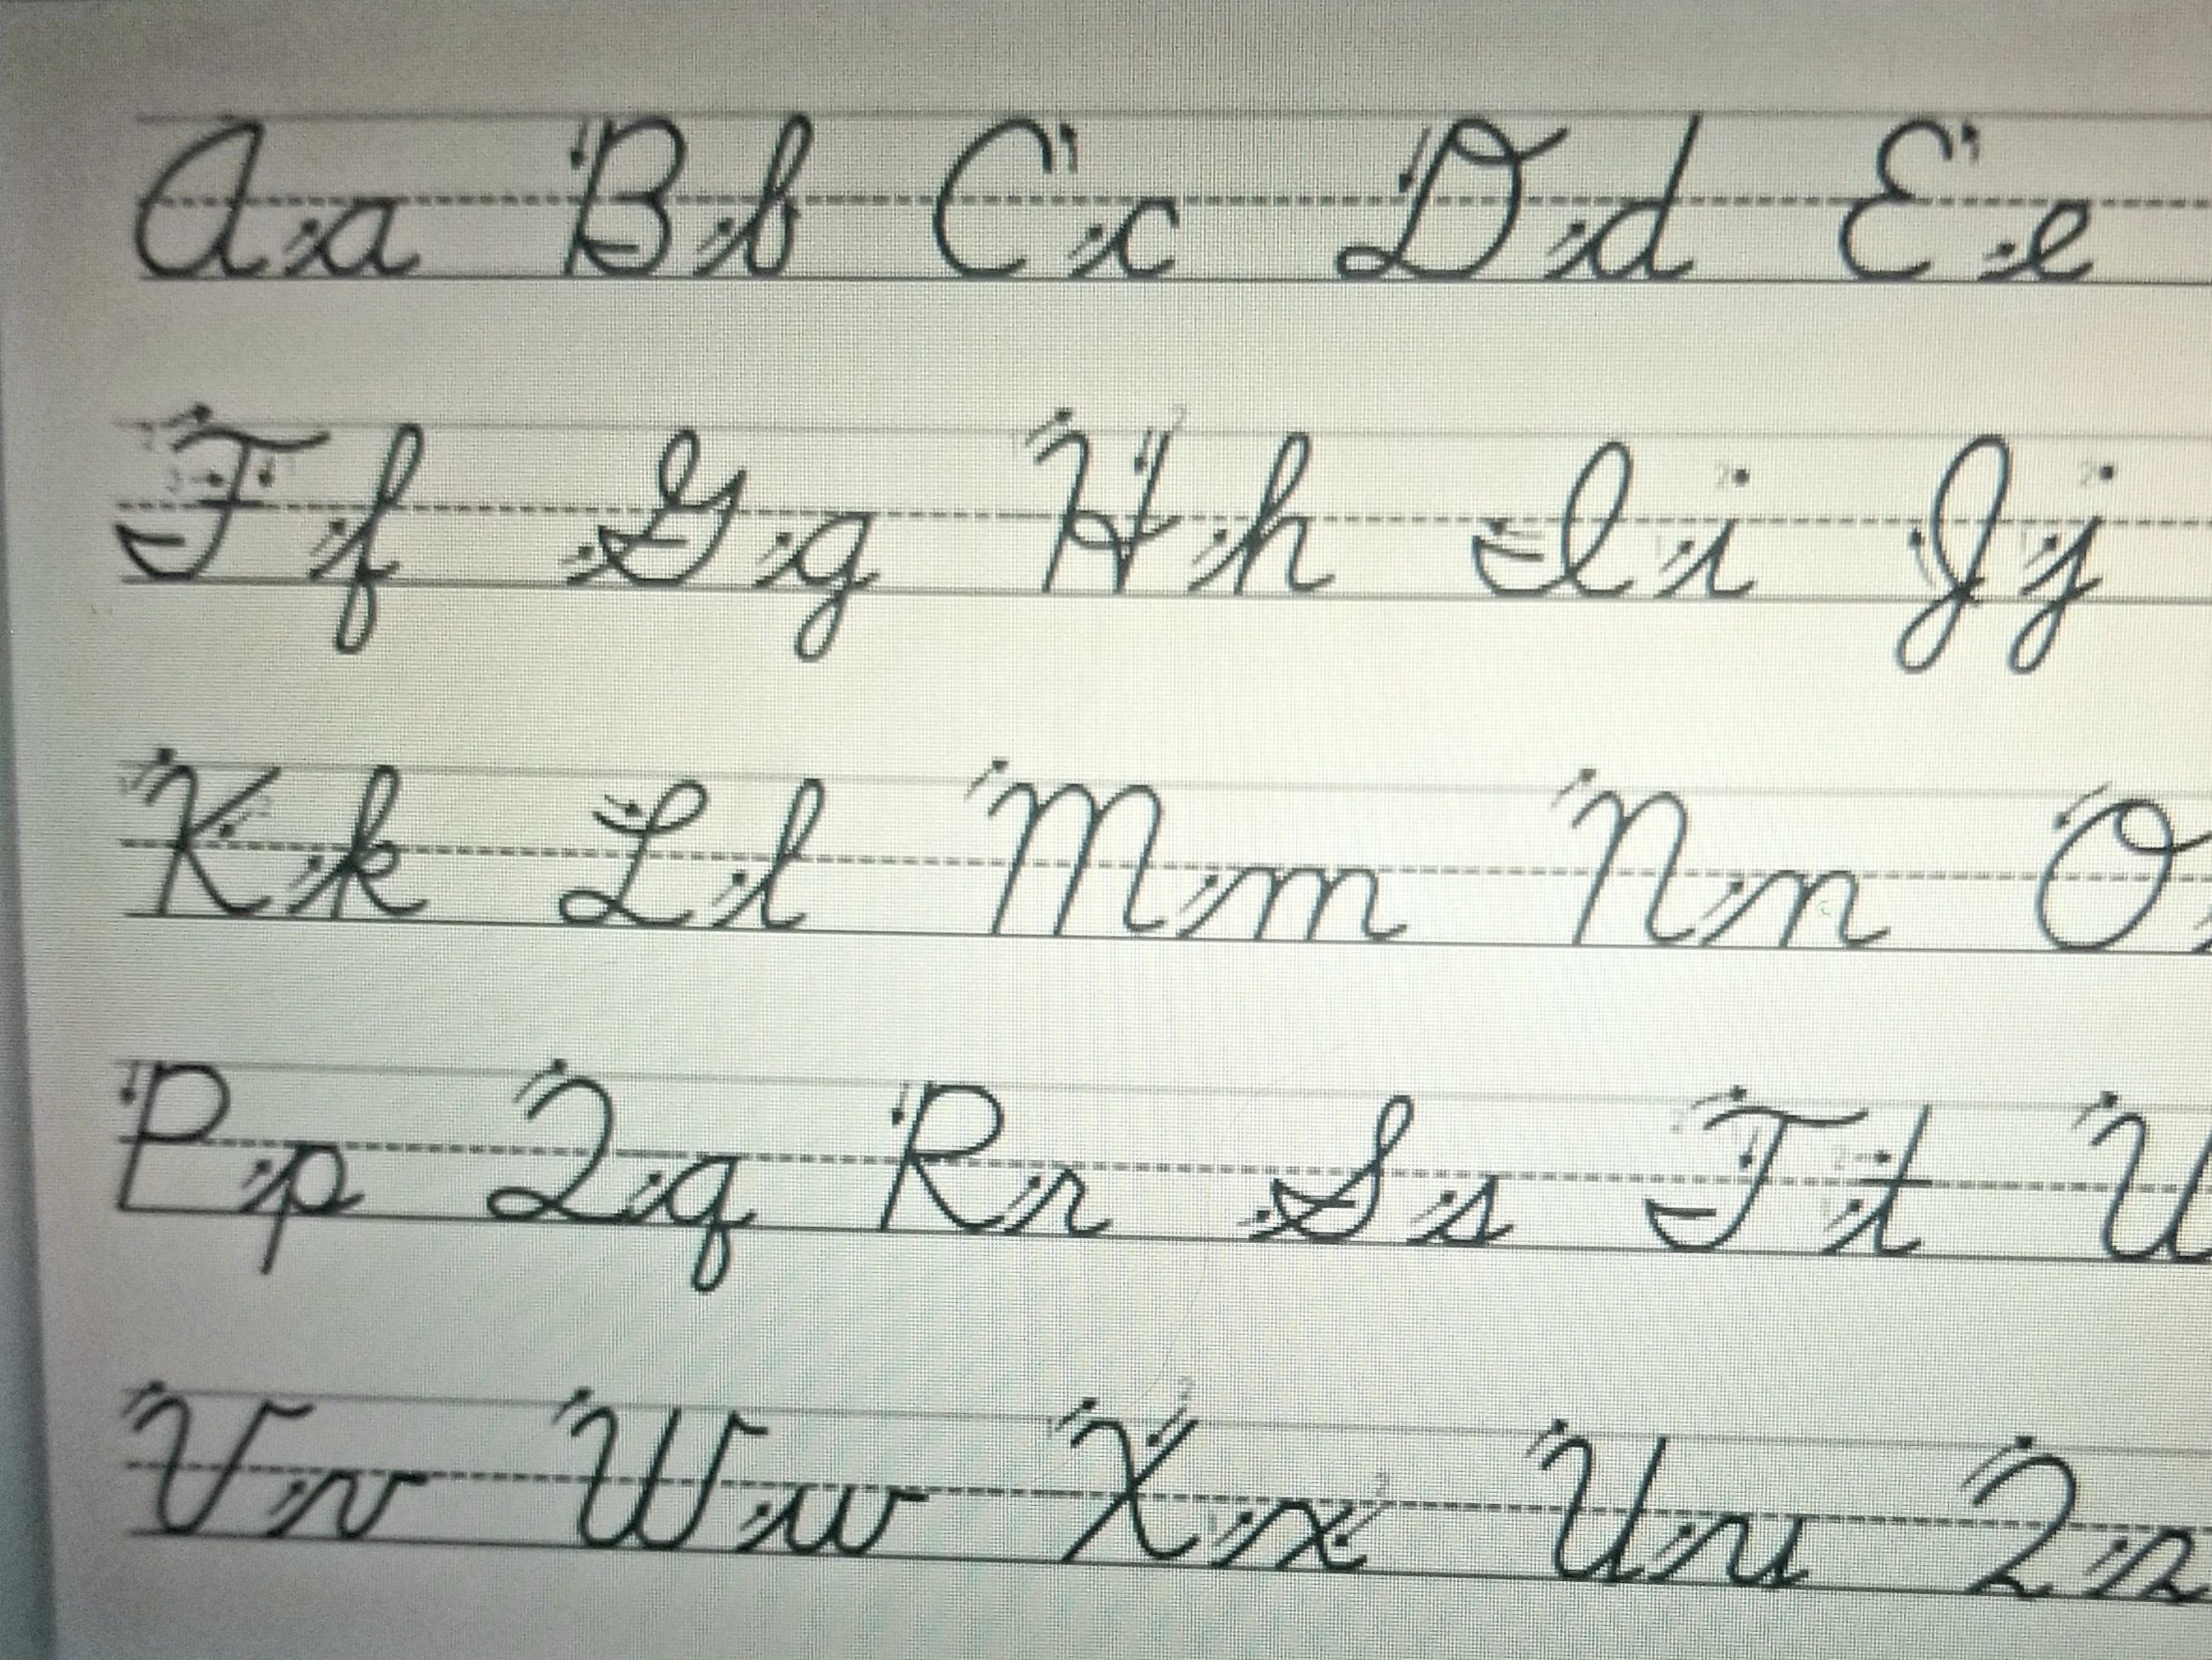 Aa Bb Cc Dd Ee
Ff Gg Hh Ii Jj
Kk Ll Mm Nn O
Pp Qq Rr Ss Tt U
Vv Ww Xx Uu Zz